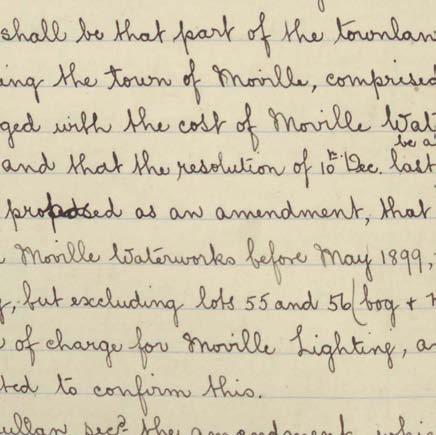 shall be that part of the townlan
ing the town of Moville, comprised
ged with the cost of Moville Wat
be a
and that the resolution of 10th Dec. last
proposed as an amendment, that
Moville Waterworks before May 1899,
, but excluding lots 55 and 56 (bog +
of charge for Moville Lighting, a
ted to confirm this.
ullan secd the amendment whi